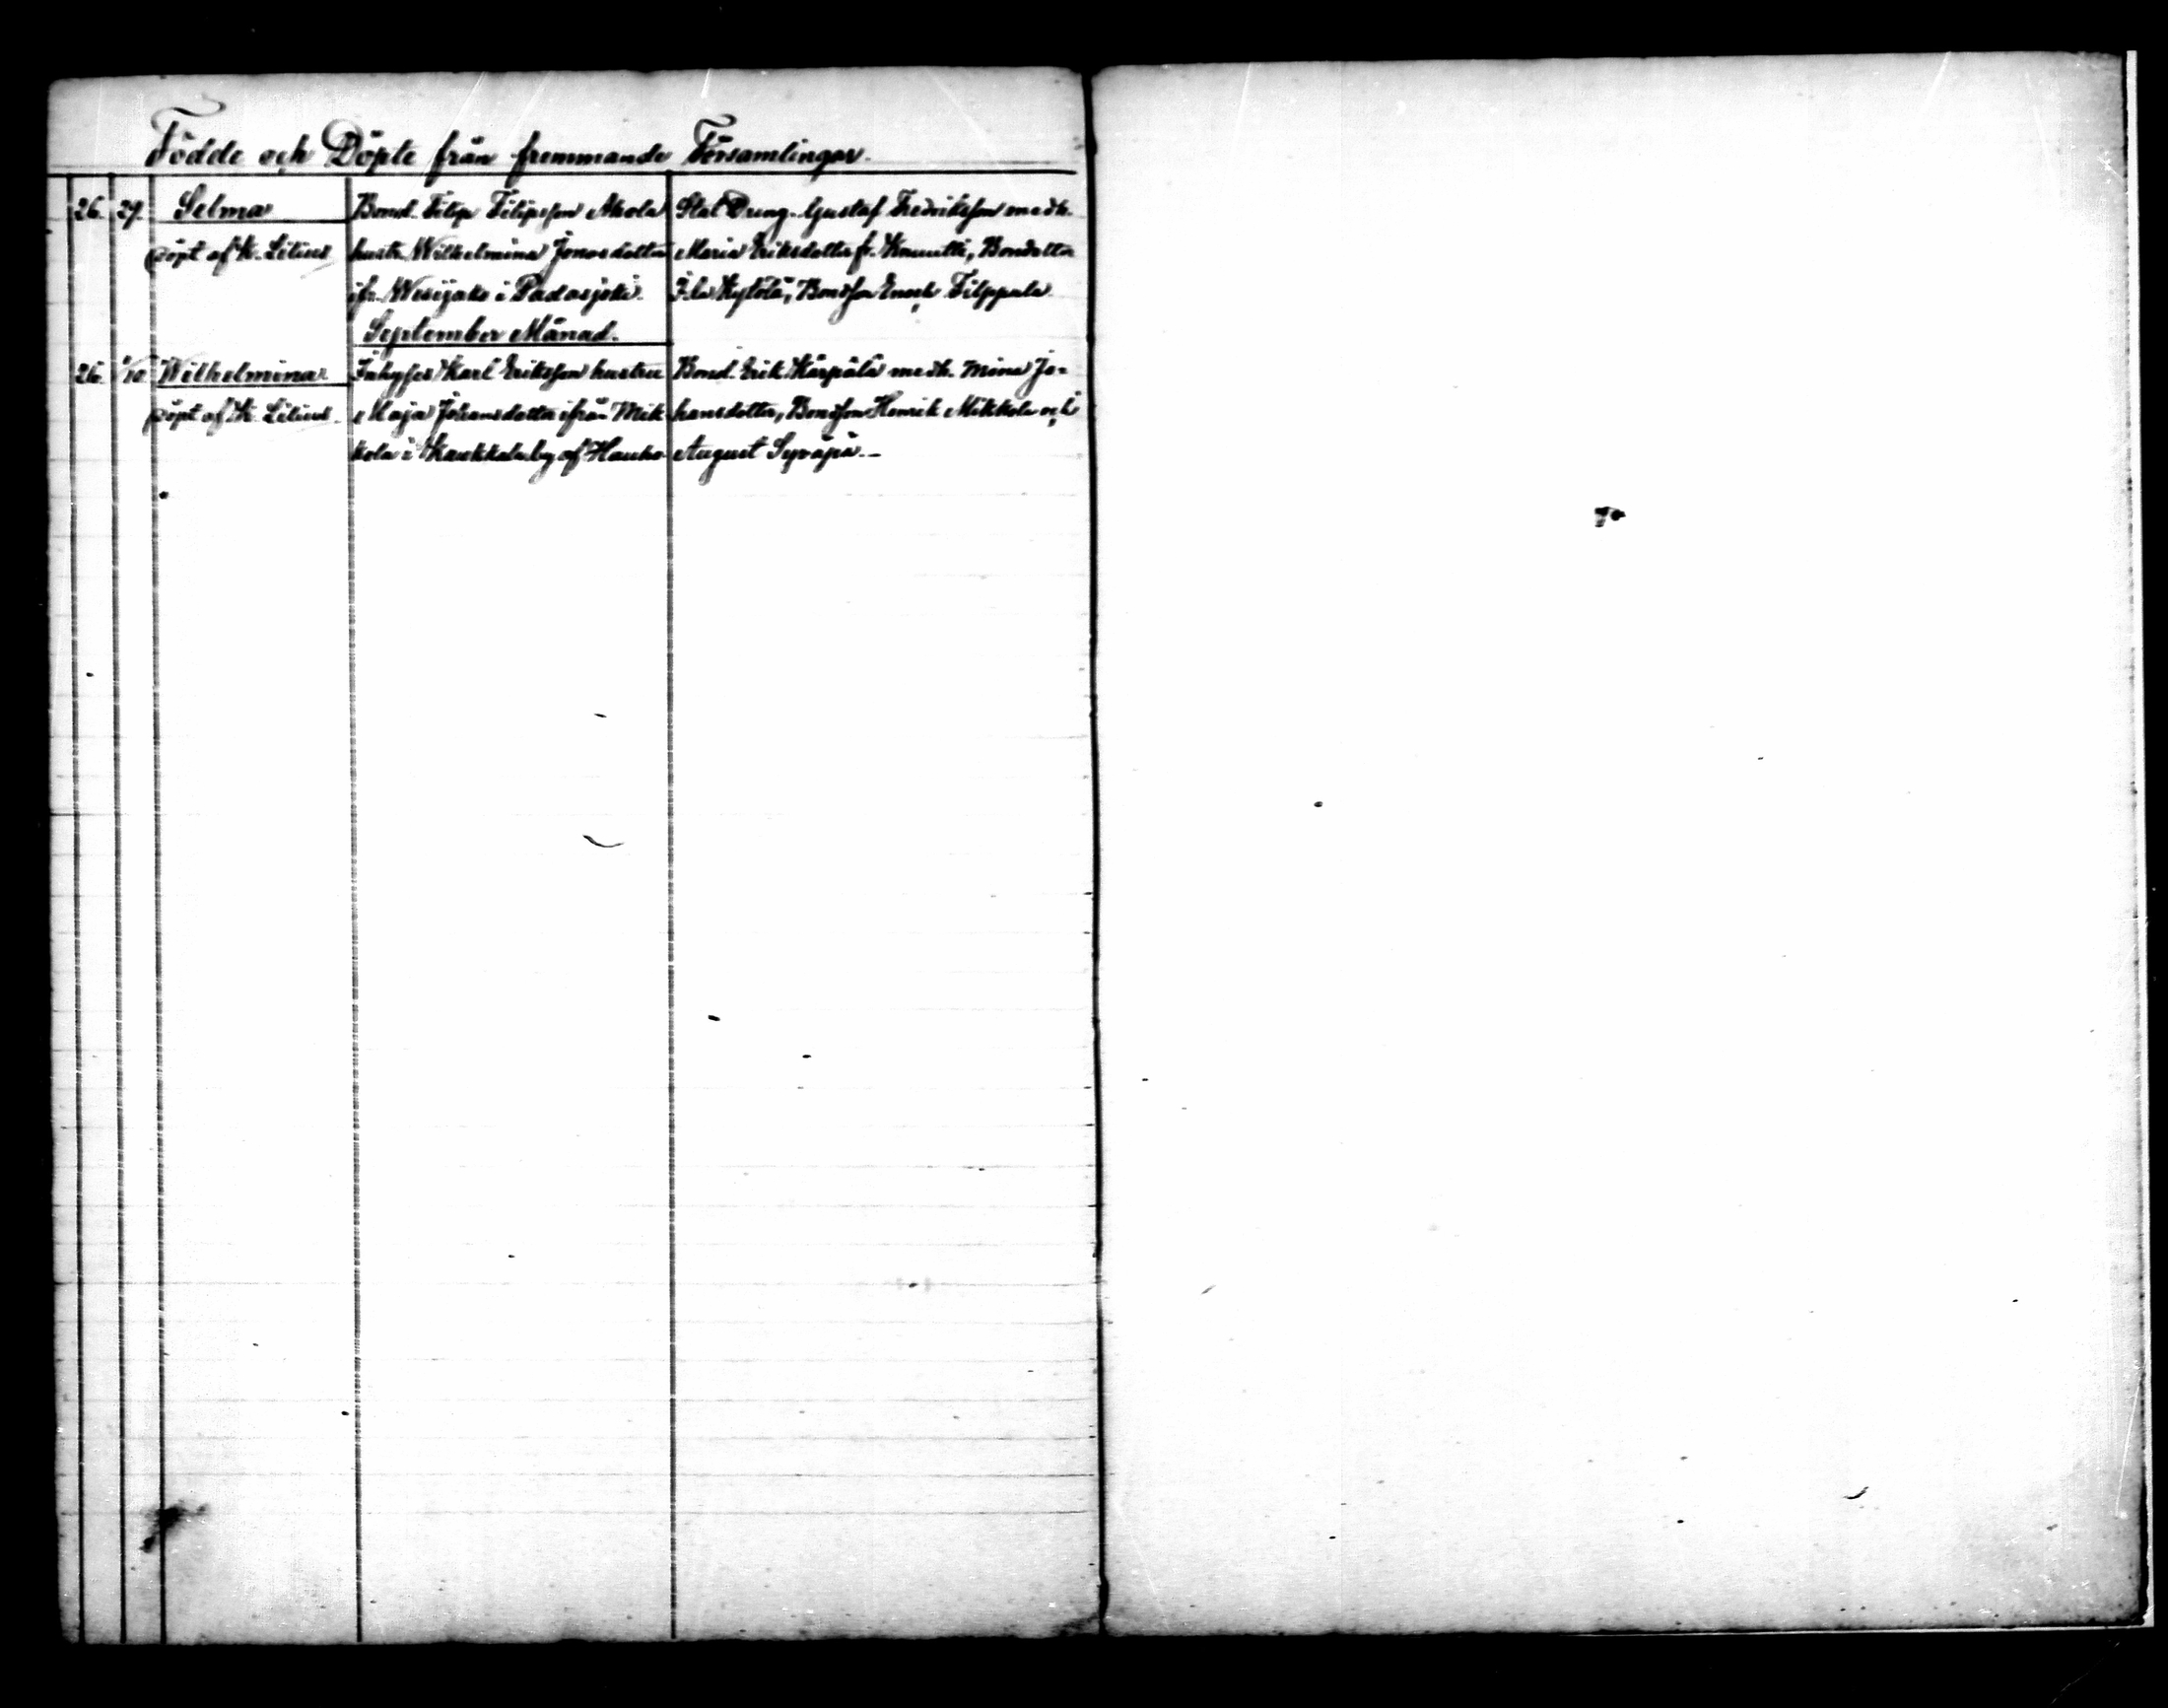 Födde och Döpte från fremmande Församlingar.
26. 27. Selma
döpt af K. Lilius
Bond. Filip Filipsson Ahola
hustr. Wilhelmina Jonasdotter
ifr. Wesijako i Padasjoki.
Stat Dreng. Gustaf Fredriksson med h.
Maria Eriksdotter fr. Knuutti, Bondotter
Kylölä, Bondson Enoch Filppula
September Månad.
26. 1/10 Wilhelmina
döpt af K. Lilius.
Inhyses Karl Eriksson hustru
Maja Johansdotter ifrån Mik
kola i by af Hauho
Bond. Erik Kärpälä med h. Mina Jo-
hansdotter, Bondson Henrik Mikkola och
August Syväpä.-